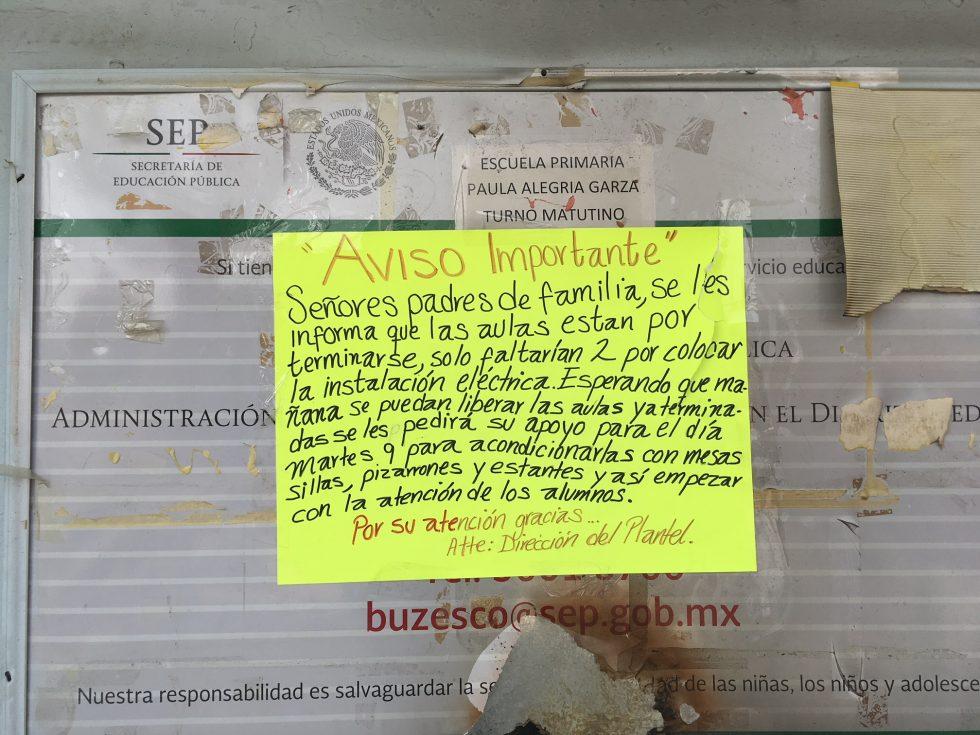 SEP
SECRETARÍA DE
EDUCACIÓN PÚBLICA
ESTADOS UNIDOS MEXICANOS
ESCUELA PRIMARIA
PAULA ALEGRIA GARZA
TURNO MATUTINO
Si tien
rvicio educa
"Aviso Importante"
Señores padres de familia, se les
informa que las aulas estan por
terminarse, solo faltarían 2 por colocar
la instalación eléctrica. Esperando que ma-
ñana se puedan liberar las aulas ya termina-
das se les pedirá su apoyo para el día
Martes 9 para acondicionarlas con mesas
sillas, pizarrones y estantes y así empezar
con la atención de los alumnos.
Por su atención gracias...
Atte: Dirección del Plantel.
LICA
ADMINISTRACIÓN
EN EL
buzesco@sep.gob.mx
Nuestra responsabilidad es salvaguardar la se
dad de las niñas, los niños y adolesce